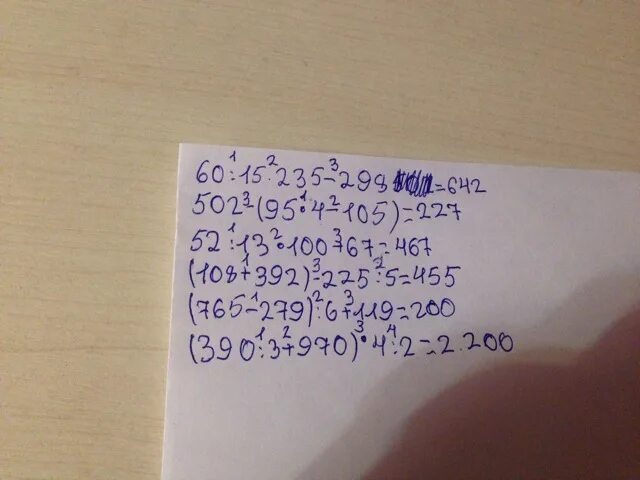 60:¹15·²235-³298=642
502-³(95·¹4-²105)=227
52:¹13·²100+³67=467
(108+¹392)-³225:²5=455
(765-¹279):²6+³119=200
(390:¹3+²970)·³4:⁴2=2.200